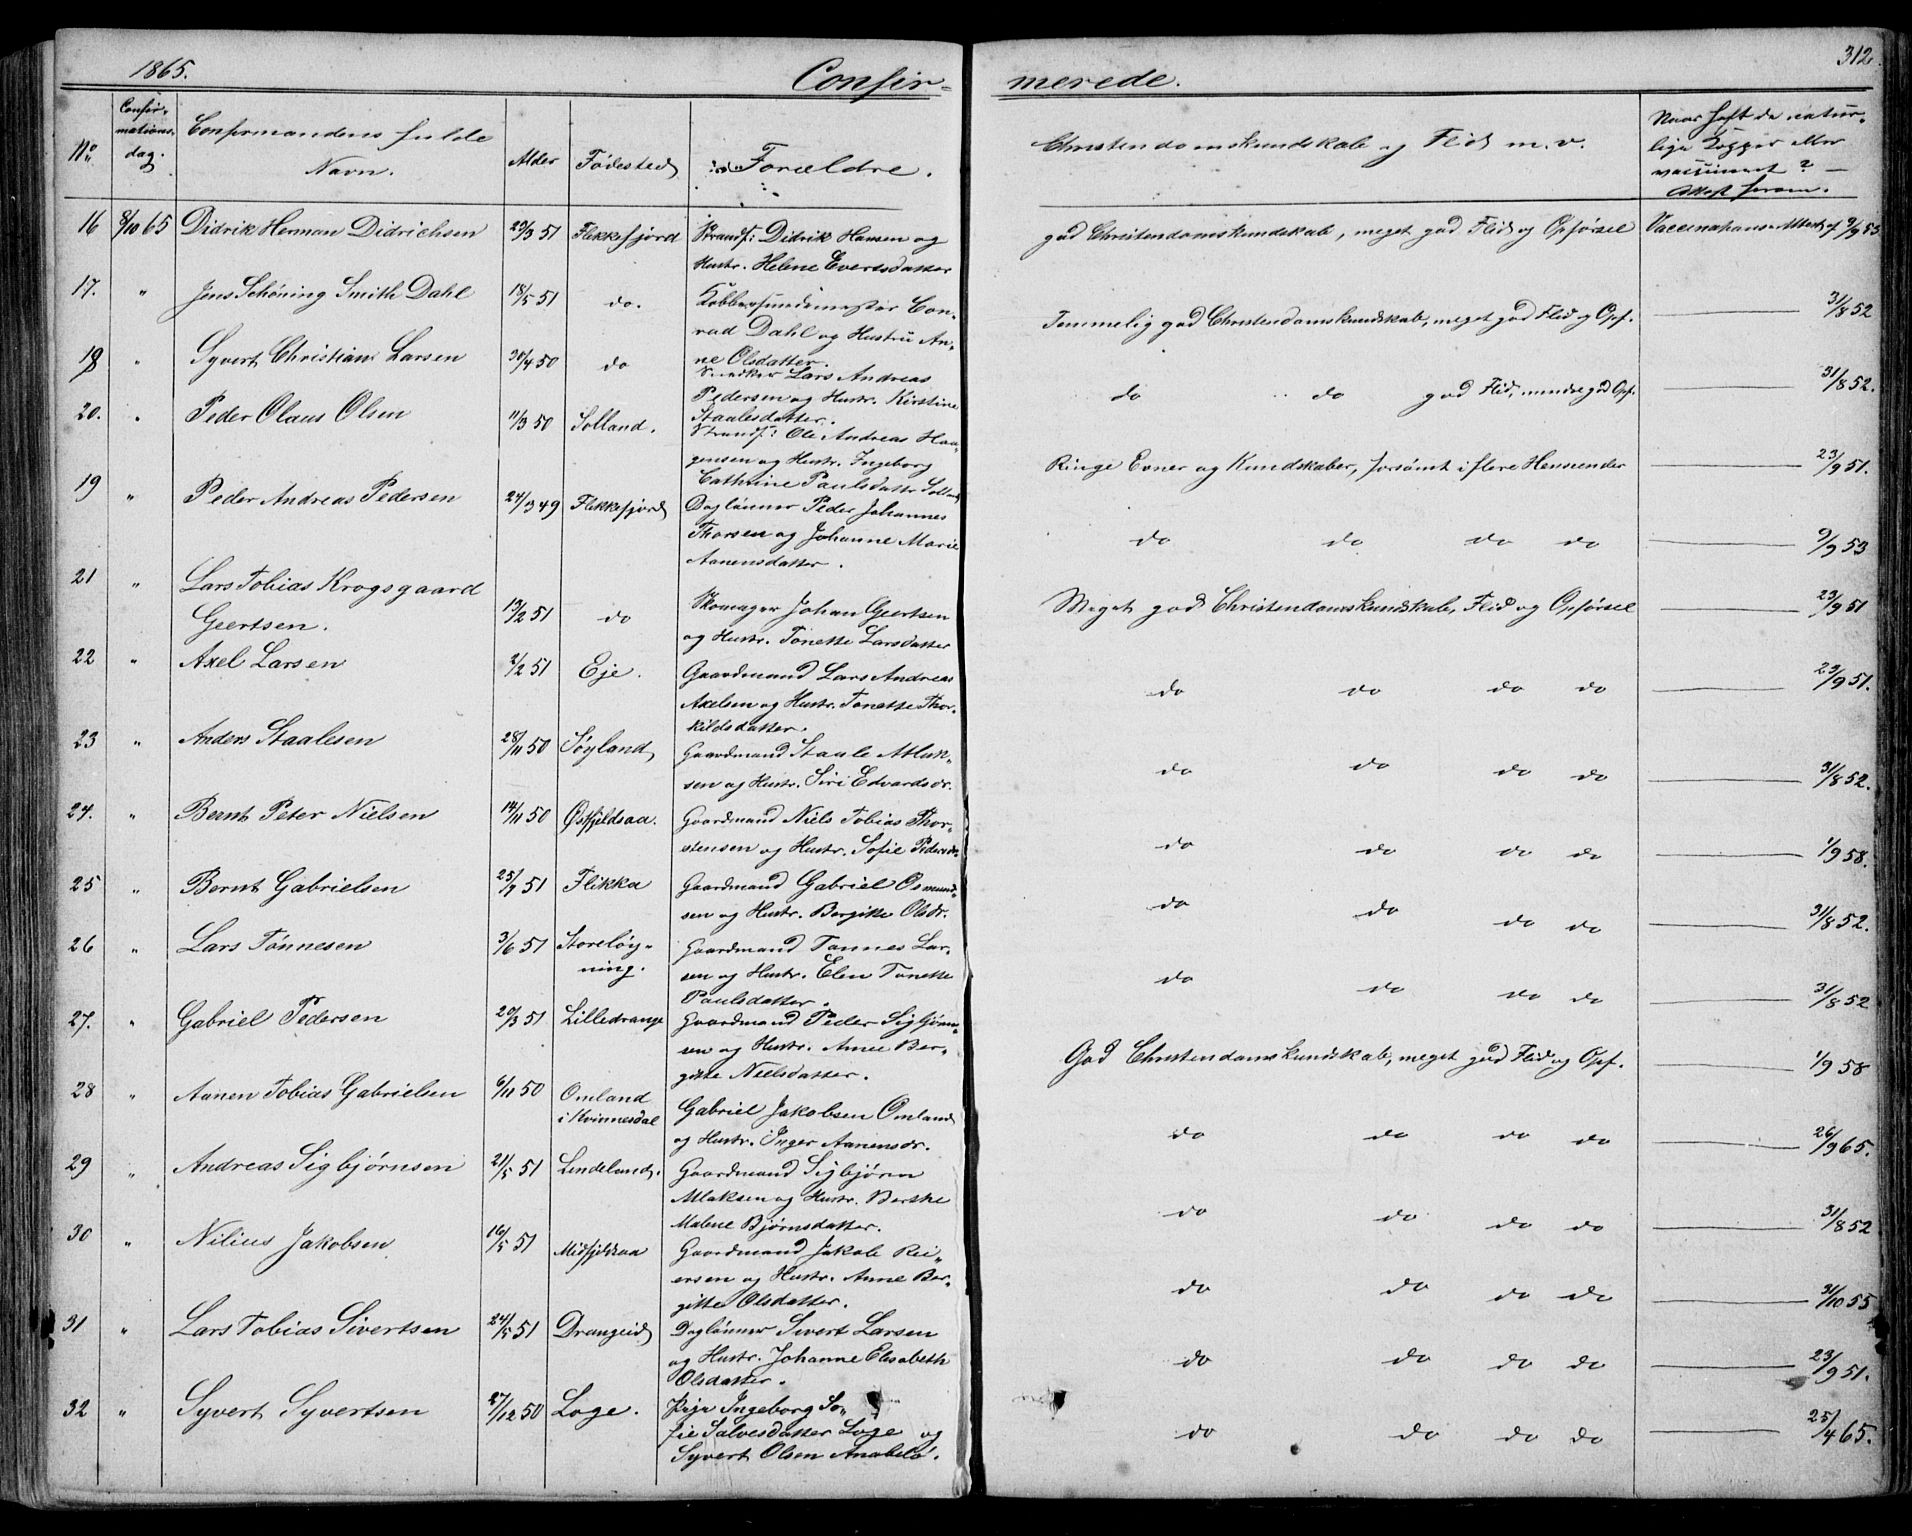 1865. Confir- merede. 312.
No. Confir- mations- dag. Confirmandens fulde Navn. Alder Fødested Forældre. Christendomskundskab og Flid m. v. Naar haft de natur- lige Kopper eller vaccineret? Attest herom.
16 8/10 65 Didrik Herman Didrichsen 29/3 51 Flekkefjord Strands: Didrik Hansen og god Christendomskundskab, meget god Flid og Opførsel Vaccinations Attest af 9/9 53
Hustr. Helene Evertsdatter
17. " Jens Schöning Smith Dahl 18/5 51 do. Kobbersmedmester Con-
rad Dahl og Hustru An- Temmelig god Christendomskundskab, meget god Flid og Opf. 31/8 52
ne Olsdatter.
18 " Syvert Christian Larsen 30/4 50 do Lars Andreas
Pedersen og Hustr. Kirstine do do god Flid, mindre god Opf. 31/8 52.
Staalesdatter.
20. " Peder Olaus Olsen 11/3 50 Solland. Strands: Ole Andreas Haa-
gensen og Hustr. Ingeborg Ringe Evner og Kundskaber, forsømt i flere Henseender 23/9 51.
Cathrine Paulsdatter Solland
19 " Peder Andreas Pedersen 24/3 49 Flekkefjord Daglønner Peder Johannes
Thorsen og Johanne Marie do do do do 9/9 53
Aanensdatter.
21 " Lars Tobias Krogsgaard
Geertsen. 13/2 51 do Skomager Johan Geertsen Meget god Christendomskundskab, Flid og Opførsel 23/9 51
og Hustr. Tonette Larsdatter
22 " Axel Larsen 2/2 51 Eje. Gaardmand Lars Andreas
Axelsen og Hustr. Tonette Thor- do do do do 23/9 51.
kildsdatter.
23 " Anders Staalesen 28/11 50 Søyland Gaardmand Staale Atlak-
sen og Hustr. Siri Edvardsdr. do do do do 31/8 52.
24. " Bernt Peter Nielsen 14/11 50 Østfjeldsaa. Gaardmand Niels Tobias Thor-
stensen og Hustr. Sofie Pedersdr. do do do do 1/9 58.
25 " Bernt Gabrielsen 25/9 51 Flikka Gaardmand Gabriel Osmund-
sen og Hustr. Bergitte Olsdr. do do do do 31/8 52.
26 " Lars Tønnesen 3/6 51 Storeløg- Gaardmand Tønnes Lar-
ning. sen og Hustr. Elen Tonette do do do do 31/8 52
Paulsdatter.
27. " Gabriel Pedersen 20/3 51 Lilledrange Gaardmand Peder Sigbjørn-
sen og Hustr. Anne Ber- God Christendomskundskab, meget god Flid og Opf. 1/9 58
gitte Nielsdatter.
28 " Aanen Tobias Gabrielsen 6/11 50 Omland Gabriel Jakobsen Omland
i Kvinnesdal og Hustr. Inger Aanensdr. do do do do 26/9 65.
29 " Andreas Sigbjørnsen 21/5 51 Lindeland. Gaardmand Sigbjørn
Atlaksen og Hustr. Berthe do do do do 31/8 52
Malene Bjørnsdatter.
30 " Nilius Jakobsen 16/5 51 Midfjeldsaa Gaardmand Jakob Rei-
ersen og Hustr. Anne Ber- do do do do 31/10 55
gitte Olsdatter.
31 " Lars Tobias Sivertsen 24/5 51 Drangeid Daglønner Sivert Larsen
og Hustr. Johanne Elisabeth do do do do 23/9 51.
Olsdatter.
32 " Syvert Syvertsen 27/12 50 Loge. Pige Ingeborg So-
fie Salvesdatter Loge og do do do do 25/4 65.
Syvert Olsen Anabelø.